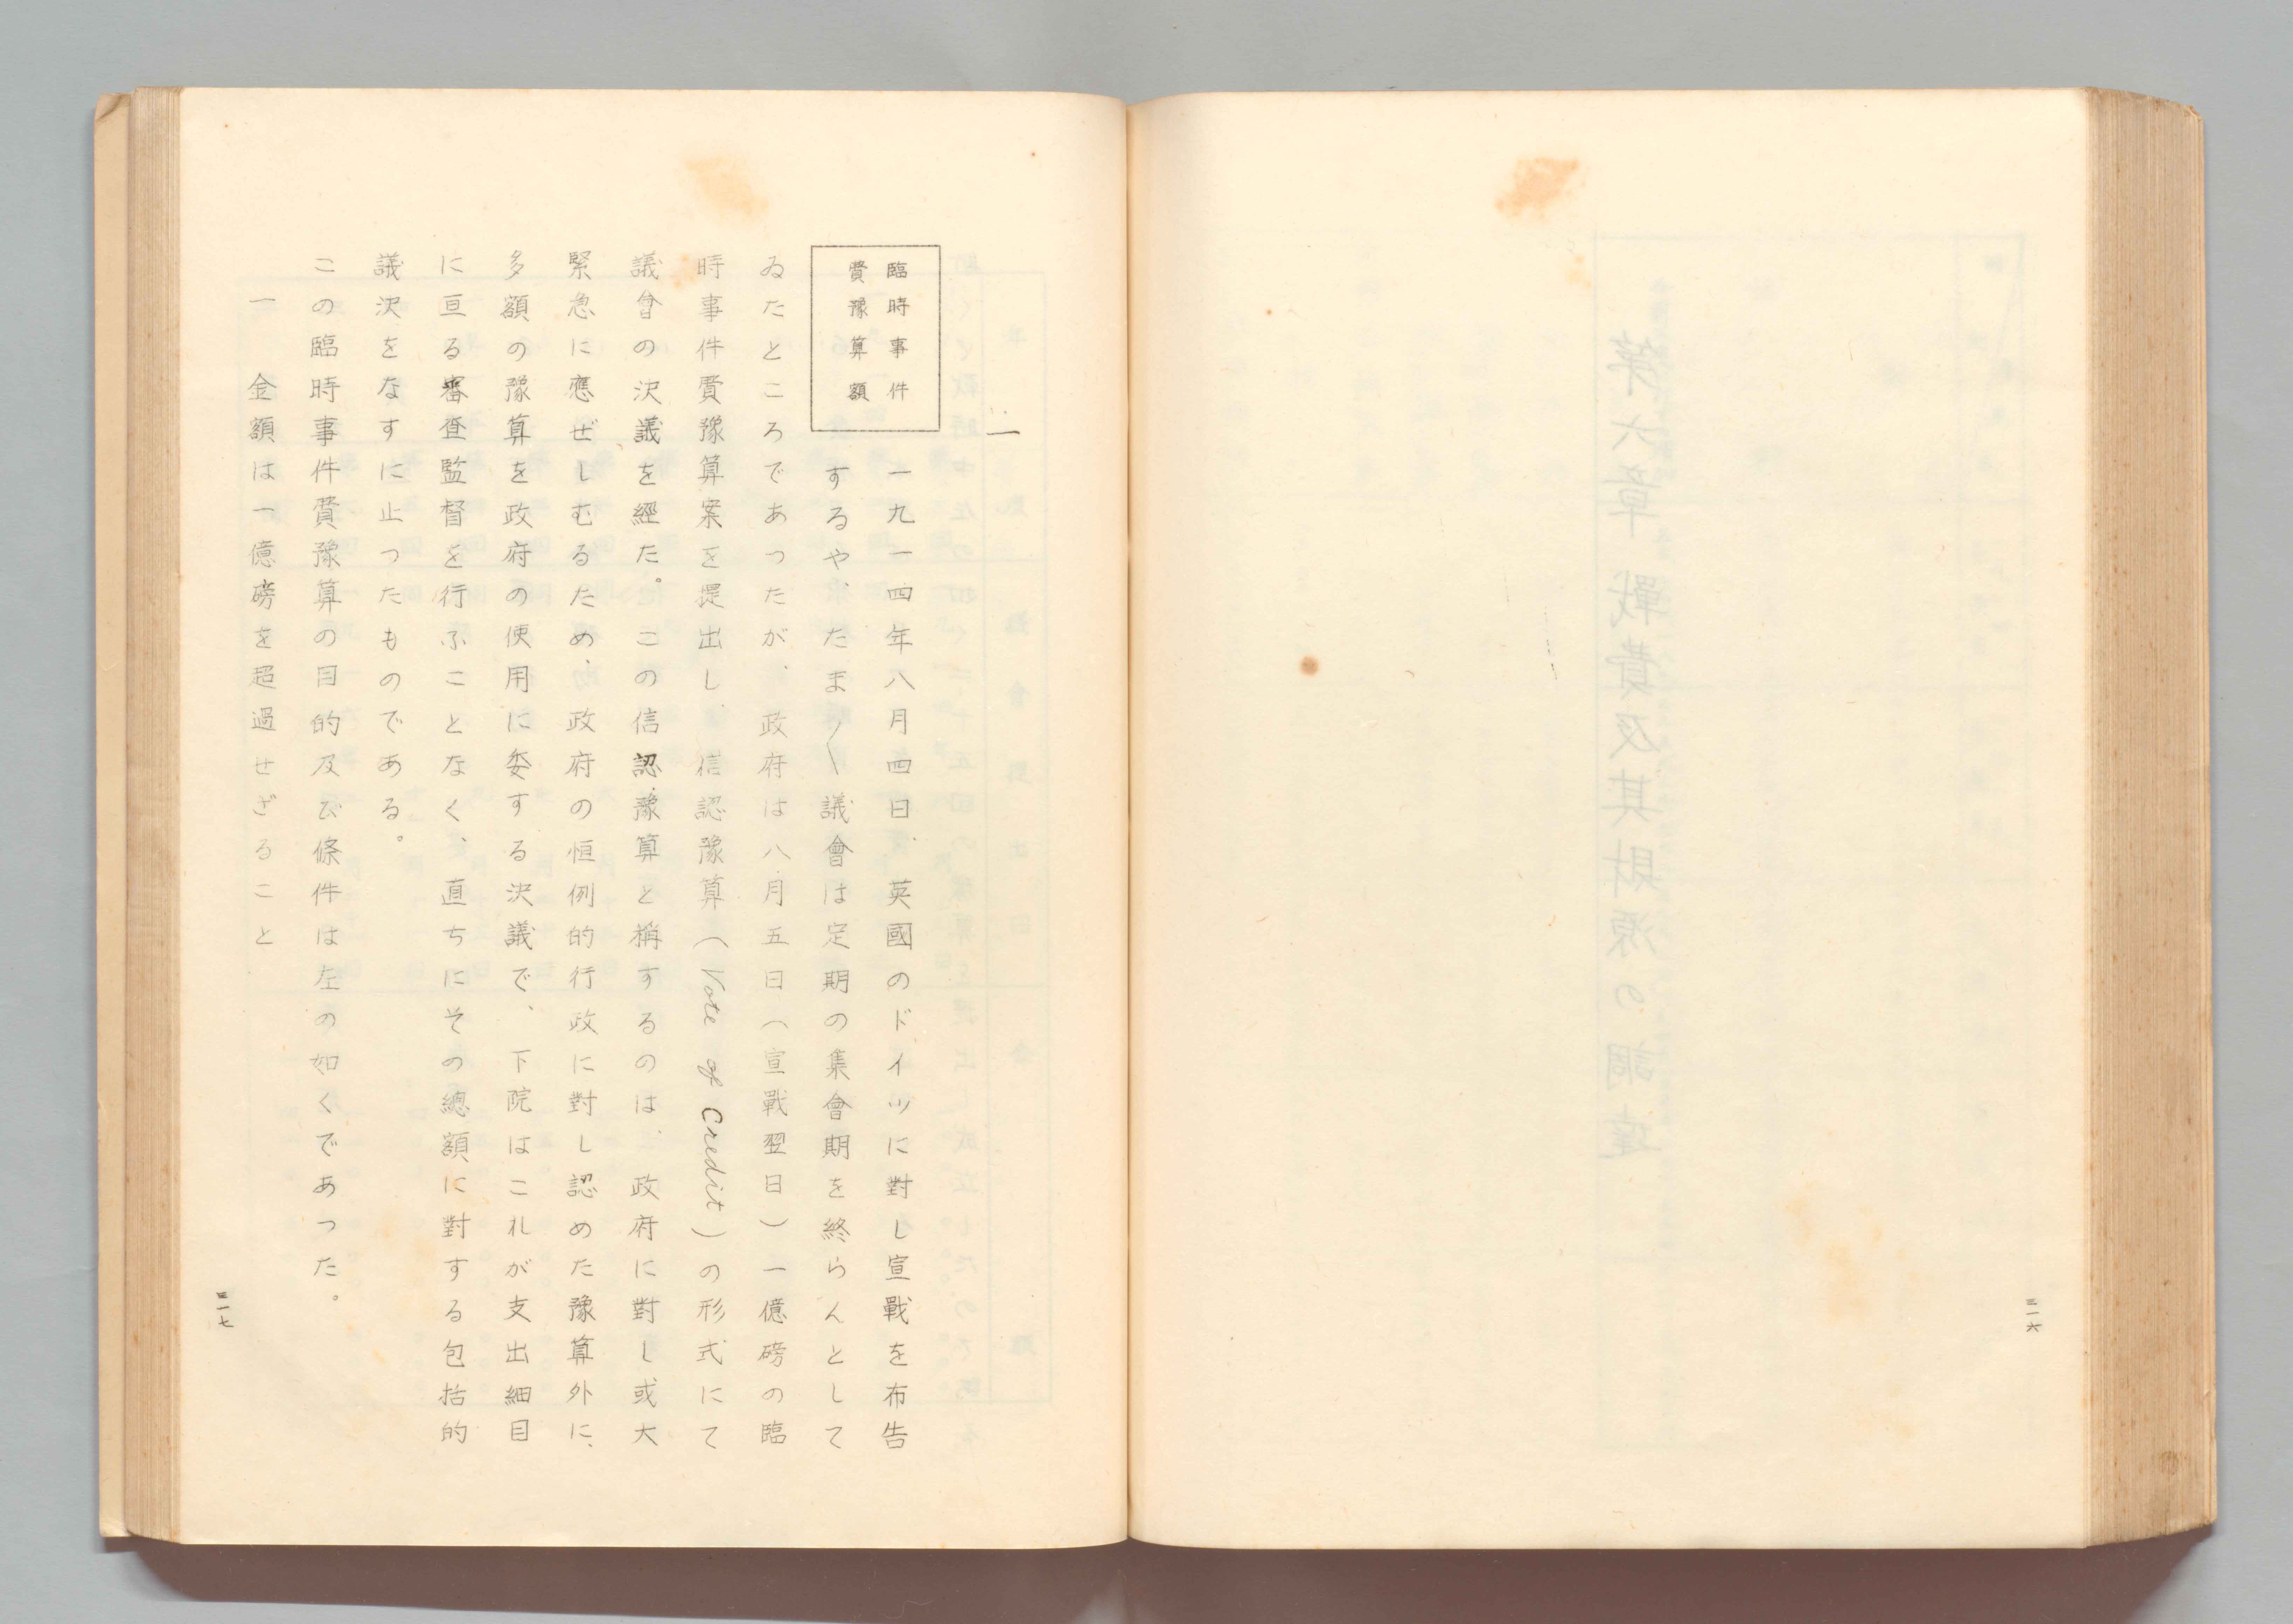 三一六
一
臨時事件
費豫算額
一九一四年八月四日、英國のドイツに對し宣戰を布告
するや、たま〱議會は定期の集會期を終らんとして
ゐたところであつたが、政府は八月五日（宣戰翌日）一億磅の臨
時事件費豫算案を提出し、信認豫算（Vote of Credit）の形式にて
議會の決議を經た。この信認豫算と稱するのは、政府に對し或大
緊急に應ぜしむるため、政府の恒例的行政に對し認めた豫算外に、
多額の豫算を政府の使用に委する決議で、下院はこれが支出細目
に亘る審査監督を行ふことなく、直ちにその總額に對する包括的
議決をなすに止つたものである。
この臨時事件費豫算の目的及び條件は左の如くであつた。
一　金額は一億磅を超過せざること
三一七